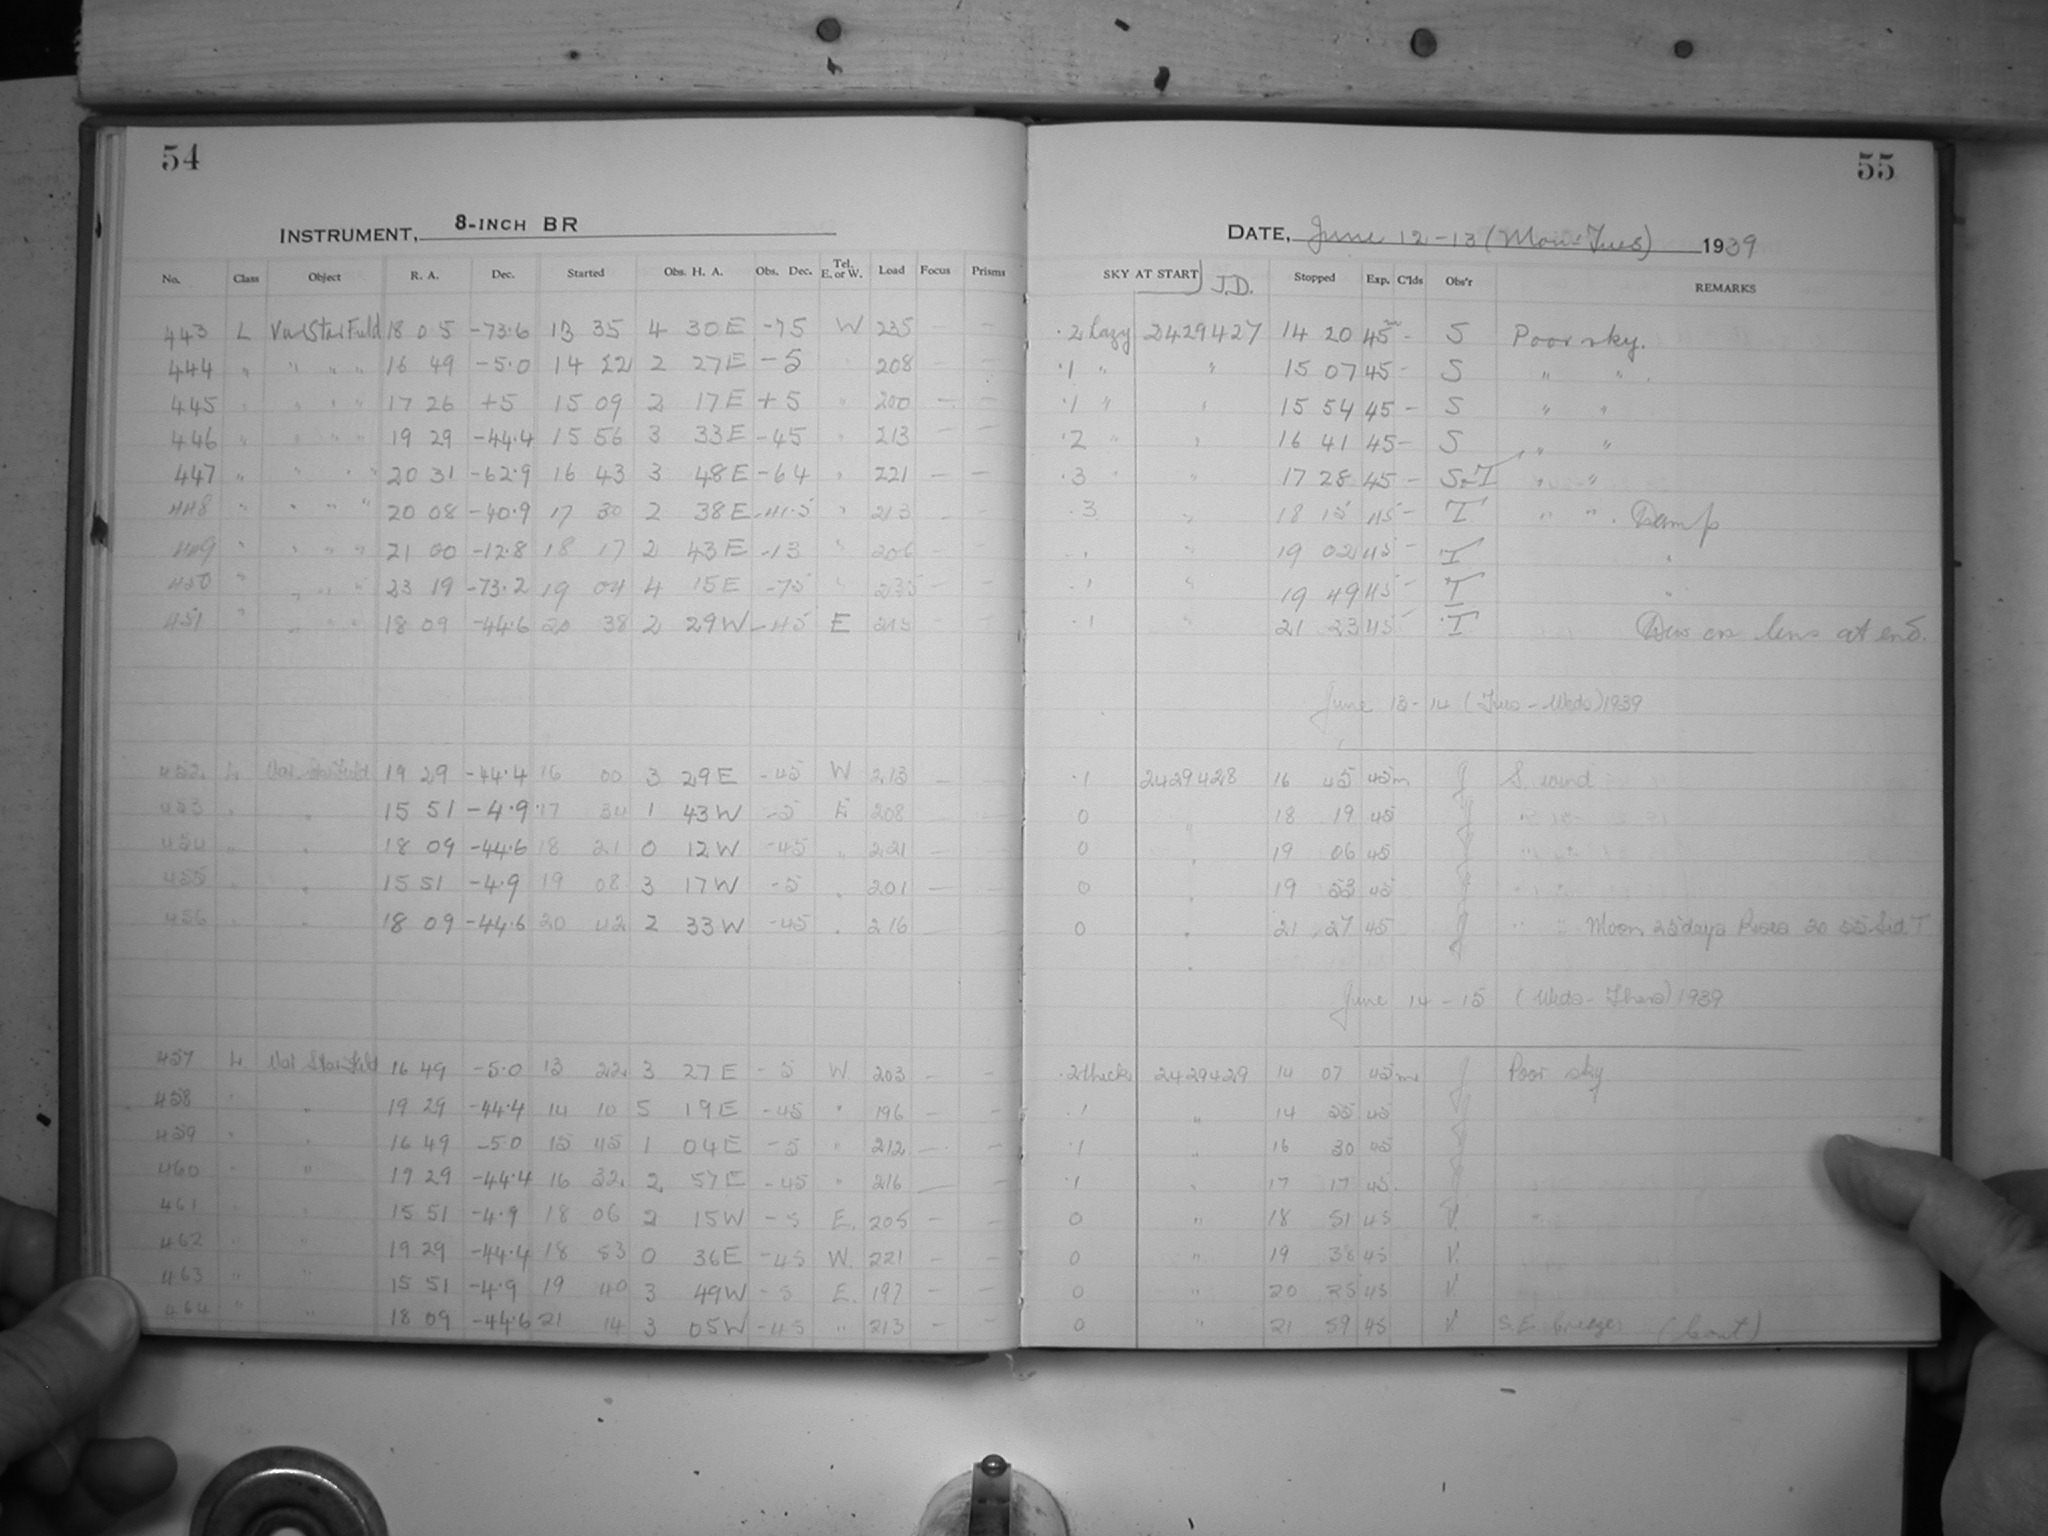 54
INSTRUMENT, 8-INCH BR
No. Class Object R. A. Dec. Started Obs. H. A. Obs. Dec. Tel. E. or W. Load Focus Prisms
443 L Var Star Field 18 05 -73.6 13 35 4 30E -75 W 235 — —
444 " " " " 16 49 -5.0 14 22 2 27E -5 208
445 " " " " 17 26 +5 15 09 2 17E +5 " 200 — —
446 " " " " 19 29 -44.4 15 56 3 33E -45 " 213 — —
447 " " " " 20 31 -62.9 16 43 3 48E -64 " 221 — —
448 " " " " 20 08 -40.9 17 30 2 38E -41.5 " 213 — —
449 " " " " 21 00 -12.8 18 17 2 43E -13 " 206 — —
450 " " " " 23 19 -73.2 19 04 4 15E -75 " 235 — —
451 " " " " 18 09 -44.6 20 38 2 29W -45 E 215 — —
452 L Var. Star Field 19 29 -44.4 16 00 3 29E -45 W 213 —
453 " " 15 51 -4.9 17 34 1 43W -5 E 208
454 " " 18 09 -44.6 18 21 0 12W -45 " 221 — —
455 " " 15 51 -4.9 19 08 3 17W -5 " 201 — —
456 " " 18 09 -44.6 20 42 2 33W -45 " 216 — —
457 L Var Star Field 16 49 -5.0 13 22 3 27E -5 W 203 — —
458 " " 19 29 -44.4 14 10 5 19E -45 " 196 — —
459 " " 16 49 -5.0 15 45 1 04E -5 " 212 — —
460 " " 19 29 -44.4 16 32 2 57E -45 " 216 — —
461 " " 15 51 -4.9 18 06 2 15W -5 E. 205 — —
462 " " 19 29 -44.4 18 53 0 36E -45 W. 221 — —
463 " " 15 51 -4.9 19 40 3 49W -5 E. 197 — —
464 " " 18 09 -44.6 21 14 3 05W -45 " 213 — —
55
DATE, June 12-13 (Mon-Tues) 1939
SKY AT START J.D. Stopped Exp. C'lds Obs'r REMARKS
.2 hazy 2429427 14 20 45m - S Poor sky.
.1 " " 15 07 45 - S " "
.1 " " 15 54 45 - S " "
.2 " " 16 41 45 - S " "
.3 " " 17 28 45 - S+T " "
.3 " 18 15 45 - T " ". Damp
.1 " 19 02 45 - T "
.1 " 19 49 45 - T "
.1 " 21 23 45 - T Dew on lens at end.
June 13-14 (Tues-Weds) 1939
.1 2429428 16 45 45m J S. wind
0 " 18 19 45 J " "
0 " 19 06 45 J " "
0 " 19 53 45 J " "
0 " 21 27 45 J " " Moon 25 days Rises 20 55 Sid T
June 14-15 (Weds-Thurs) 1939
.2 thick 2429429 14 07 45m J Poor sky
.1 " 14 55 45 J
.1 " 16 30 45 J
.1 " 17 17 45. J
0 " 18 51 45 V.
0 " 19 38 45 V.
0 " 20 25 45 V
0 " 21 59 45 V S.E. breeze (Cont)